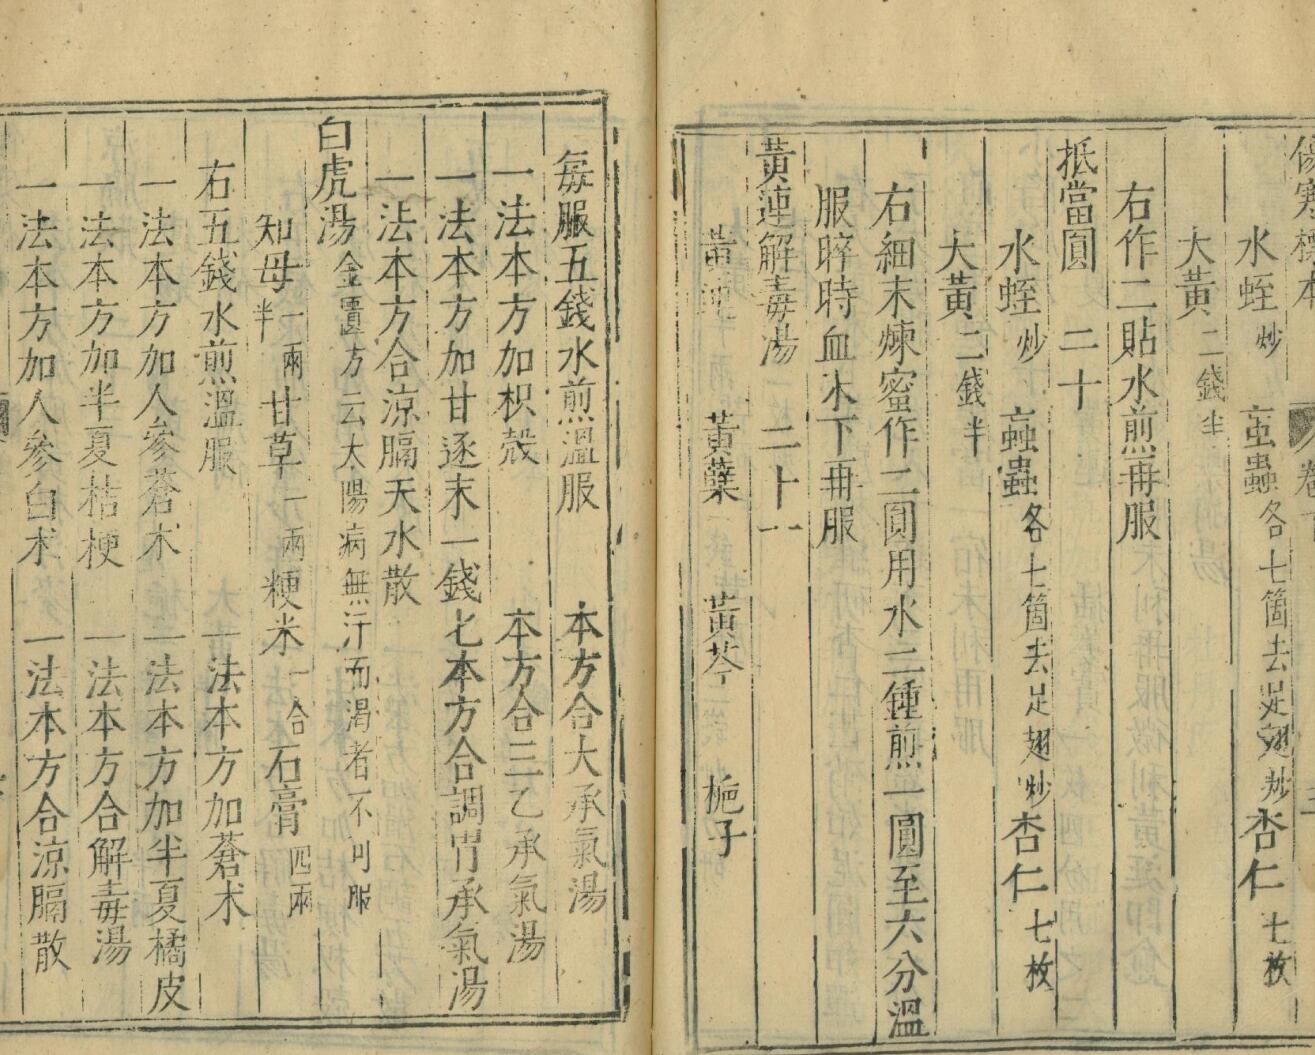 傷寒標本
水蛭炒 䖟蟲各七箇去足翅炒 杏仁七枚
大黃二錢半
右作二貼水煎再服
抵當圓 二十
水蛭炒 䖟蟲各七箇去足翅炒 杏仁七枚
大黃二錢半
右細末煉蜜作二圓用水二鍾煎一圓至六分溫
服晬時血未下再服
黃連解毒湯 二十一
黃連 黃蘗 黃芩 梔子
每服五錢水煎溫服 本方合大承氣湯
一法本方加枳殼 本方合三乙承氣湯
一法本方加甘遂末一錢七本方合調胃承氣湯
一法本方合涼膈天水散
白虎湯金匱方云太陽病無汗而渴者不可服
知母一兩半甘草一兩粳米一合石膏四兩
右五錢水煎溫服 一法本方加蒼朮
一法本方加人參蒼朮 一法本方加半夏橘皮
一法本方加半夏桔梗 一法本方合解毒湯
一法本方加人參白朮 一法本方合涼膈散